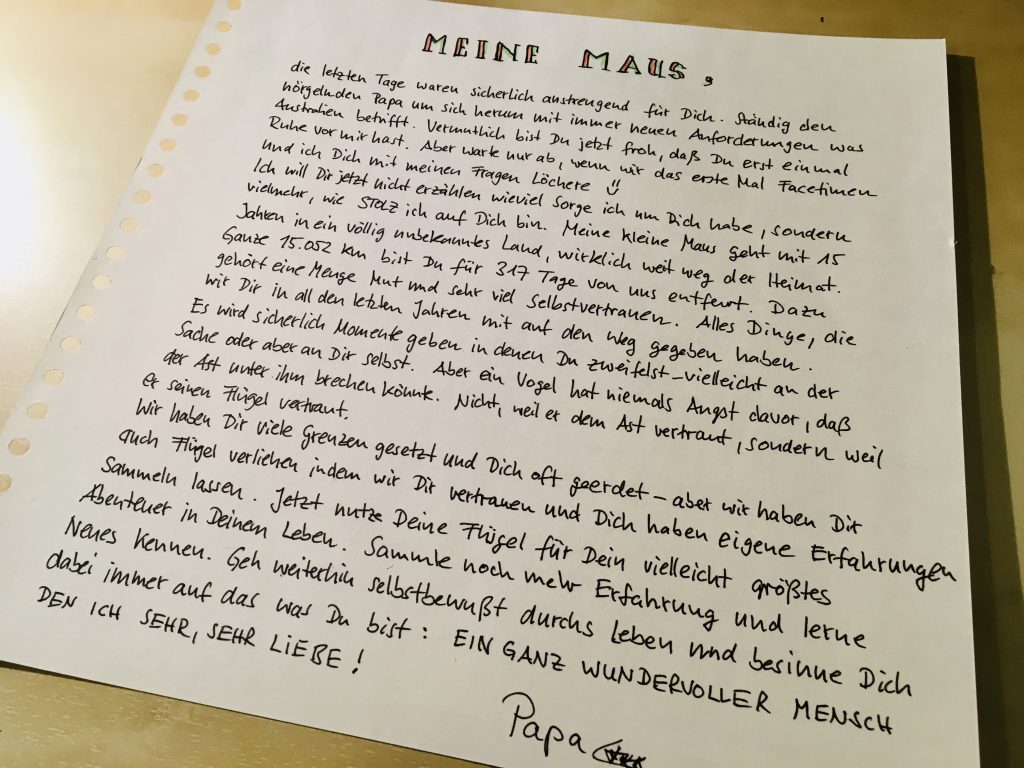 MEINE MAUS,
die letzten Tage waren sicherlich anstrengend für Dich. Ständig den
nörgelnden Papa um sich herum mit immer neuen Anforderungen was
Australien betrifft. Vermutlich bist Du jetzt froh, daß Du erst einmal
Ruhe vor mir hast. Aber warte nur ab, wenn wir das erste Mal Facetimen
und ich Dich mit meinen Fragen Löchere
Ich will Dir jetzt nicht erzählen wieviel Sorge ich um Dich habe, sondern
vielmehr, wie STOLZ ich auf Dich bin. Meine kleine Maus geht mit 15
Jahren in ein völlig unbekanntes Land, wirklich weit weg der Heimat.
Ganze 15.052 km bist Du für 317 Tage von uns entfernt. Dazu
gehört eine Menge Mut und sehr viel Selbstvertrauen. Alles Dinge, die
wir Dir in all den letzten Jahren mit auf den Weg gegeben haben.
Es wird sicherlich Momente geben in denen Du zweifelst - vielleicht an der
Sache oder aber an Dir selbst. Aber ein Vogel hat niemals Angst davor, daß
der Ast unter ihm brechen könnte. Nicht, weil er dem Ast vertraut, sondern weil
er seinen Flügel vertraut.
Wir haben Dir viele Grenzen gesetzt und Dich oft geerdet - aber wir haben Dir
auch Flügel verliehen indem wir Dir vertrauen und Dich haben eigene Erfahrungen
Sammeln lassen. Jetzt nutze Deine Flügel für Dein vielleicht größtes
Abenteuer in Deinem Leben. Sammle noch mehr Erfahrung und lerne
Neues kennen. Geh weiterhin selbstbewußt durchs Leben und besinne Dich
dabei immer auf das was Du bist: EIN GANZ WUNDERVOLLER MENSCH
DEN ICH SEHR, SEHR LIEBE!
Papa